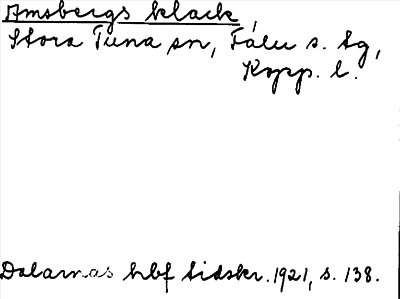 Amsbergs klack,
Stora Tuna sn, Falu s. tg,
Kopp. l.
Dalarnas hbf tidskr. 1921, s. 138.